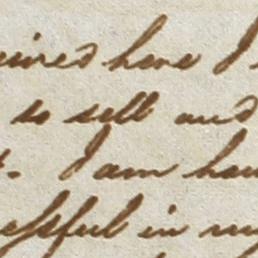 eived here I
to sell and
t. I am hav
essful in my